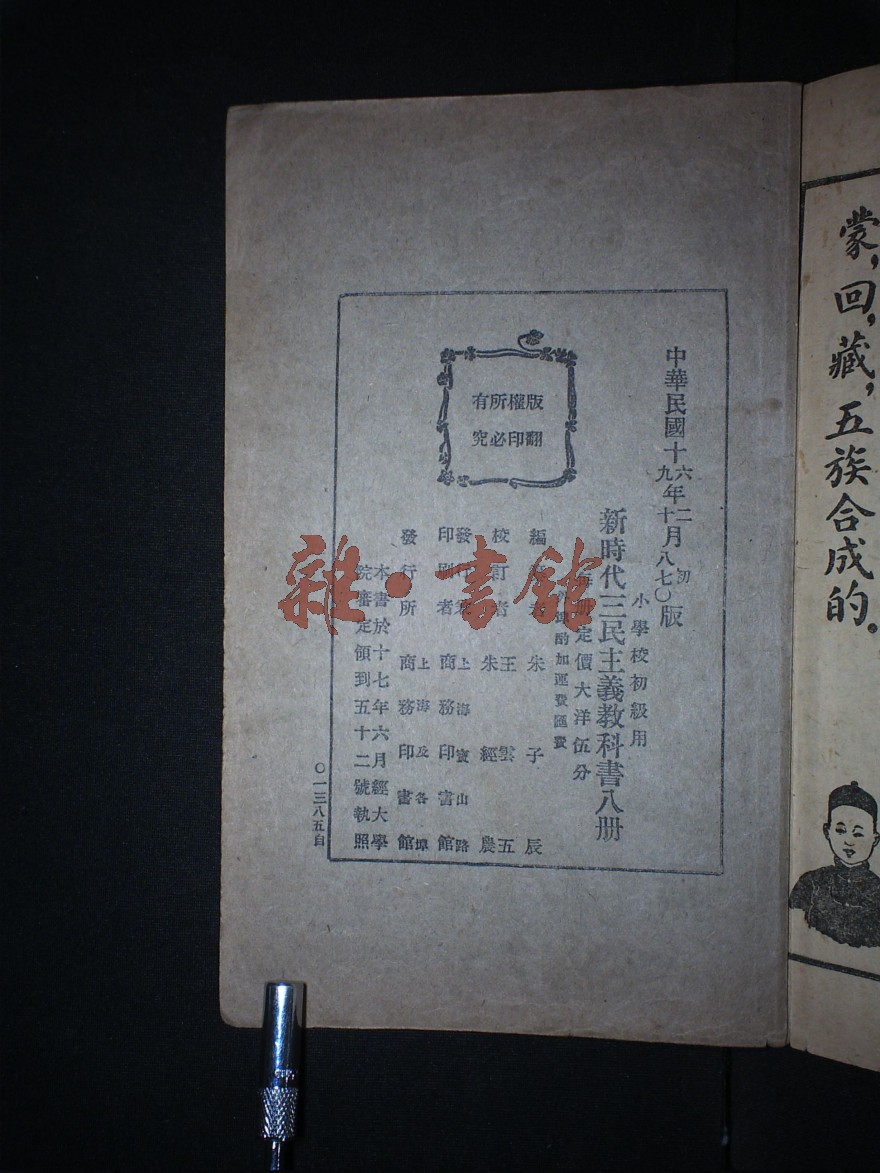 蒙，回，藏，五族合成的。
中華民國十六年二月初版
九年十月八七〇版
小學校初級用
新時代三民主義教科書八册
每册定價大洋伍分
外埠酌加運費匯費
版權所有
翻印必究
編纂者 朱子辰
校訂者 王雲五
朱經農
發行兼
印刷者 上海寶山路
商務印書館
發行所 上海及各埠
商務印書館
本書於十七年六月經大學
院審定領到五十二號執照
〇一三八五自
雜·書館